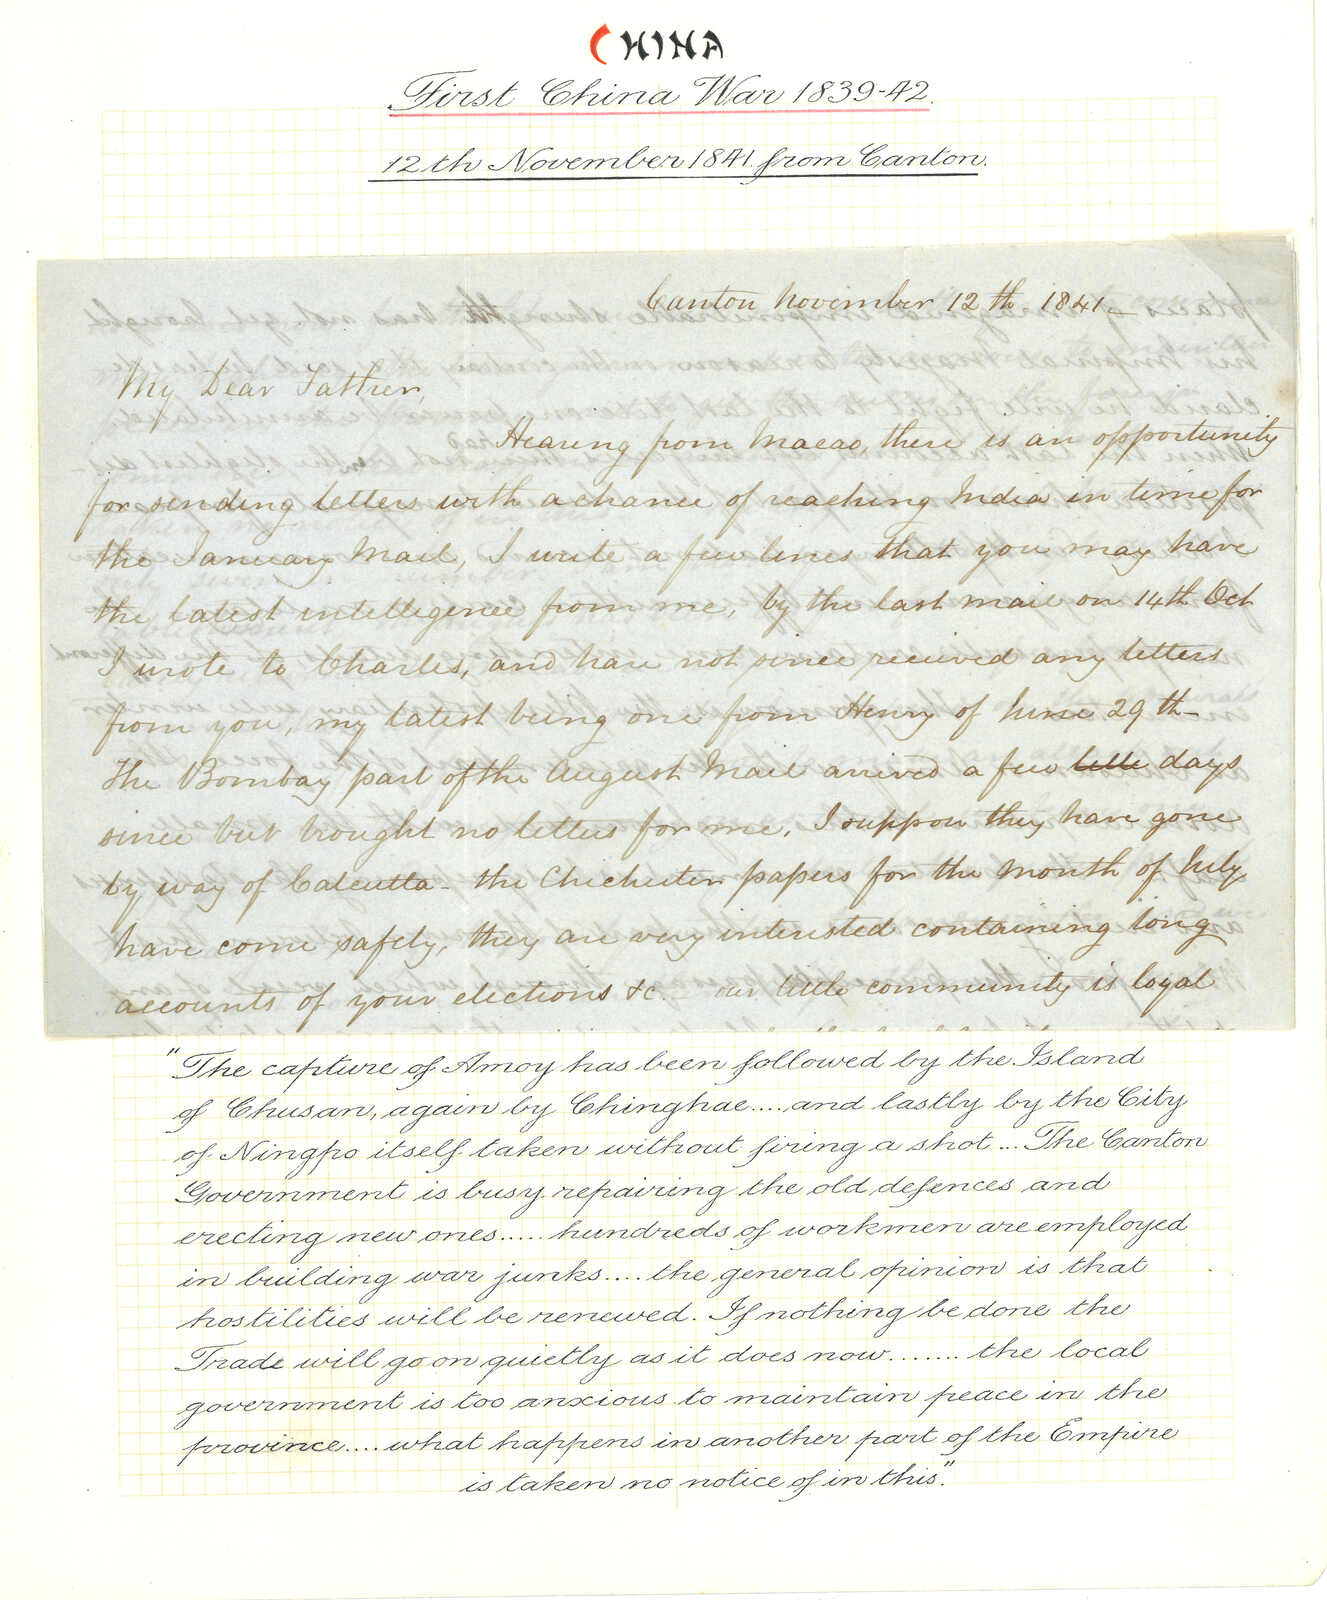 CHINA
First China War 1839-42.
12th November 1841 from Canton.
Canton November 12th 1841
My Dear Father,
Hearing from Macao, there is an opportunity
for sending letters with a chance of reaching India in time for
the January Mail, I write a few lines that you may have
the latest intelligence from me, by the last mail on 14th Oct
I wrote to Charles, and have not since received any letters
from you, my latest being one from Henry of June 29th
The Bombay part of the August Mail arrived a few days
since but brought no letters for me, I suppose they have gone
by way of Calcutta - the Chichester papers for the month of July
have come safely, they are very interested containing long
accounts of your elections &c. our little community is loyal
"The capture of Amoy has been followed by the Island
of Chusan, again by Chinghae....and lastly by the City
of Ningpo itself taken without firing a shot...The Canton
Government is busy repairing the old defences and
erecting new ones.....hundreds of workmen are employed
in building war junks....the general opinion is that
hostilities will be renewed. If nothing be done the
Trade will go on quietly as it does now.......the local
government is too anxious to maintain peace in the
province....what happens in another part of the Empire
is taken no notice of in this".